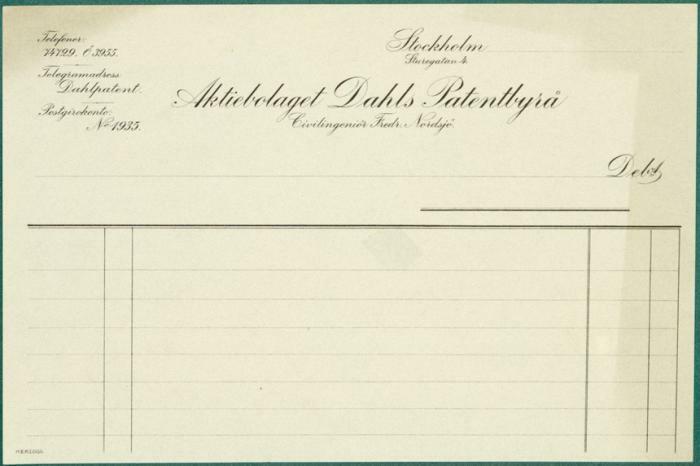 Telefoner:
74729. Ö 3955.
Telegramadress:
Dahlpatent.
Postgirokonto:
No 1935.
Stockholm
Sturegatan 4.
Aktiebolaget Dahls Patentbyrå
Civilingeniör Fredr. Nordsjö.
Debet
HERZOGS